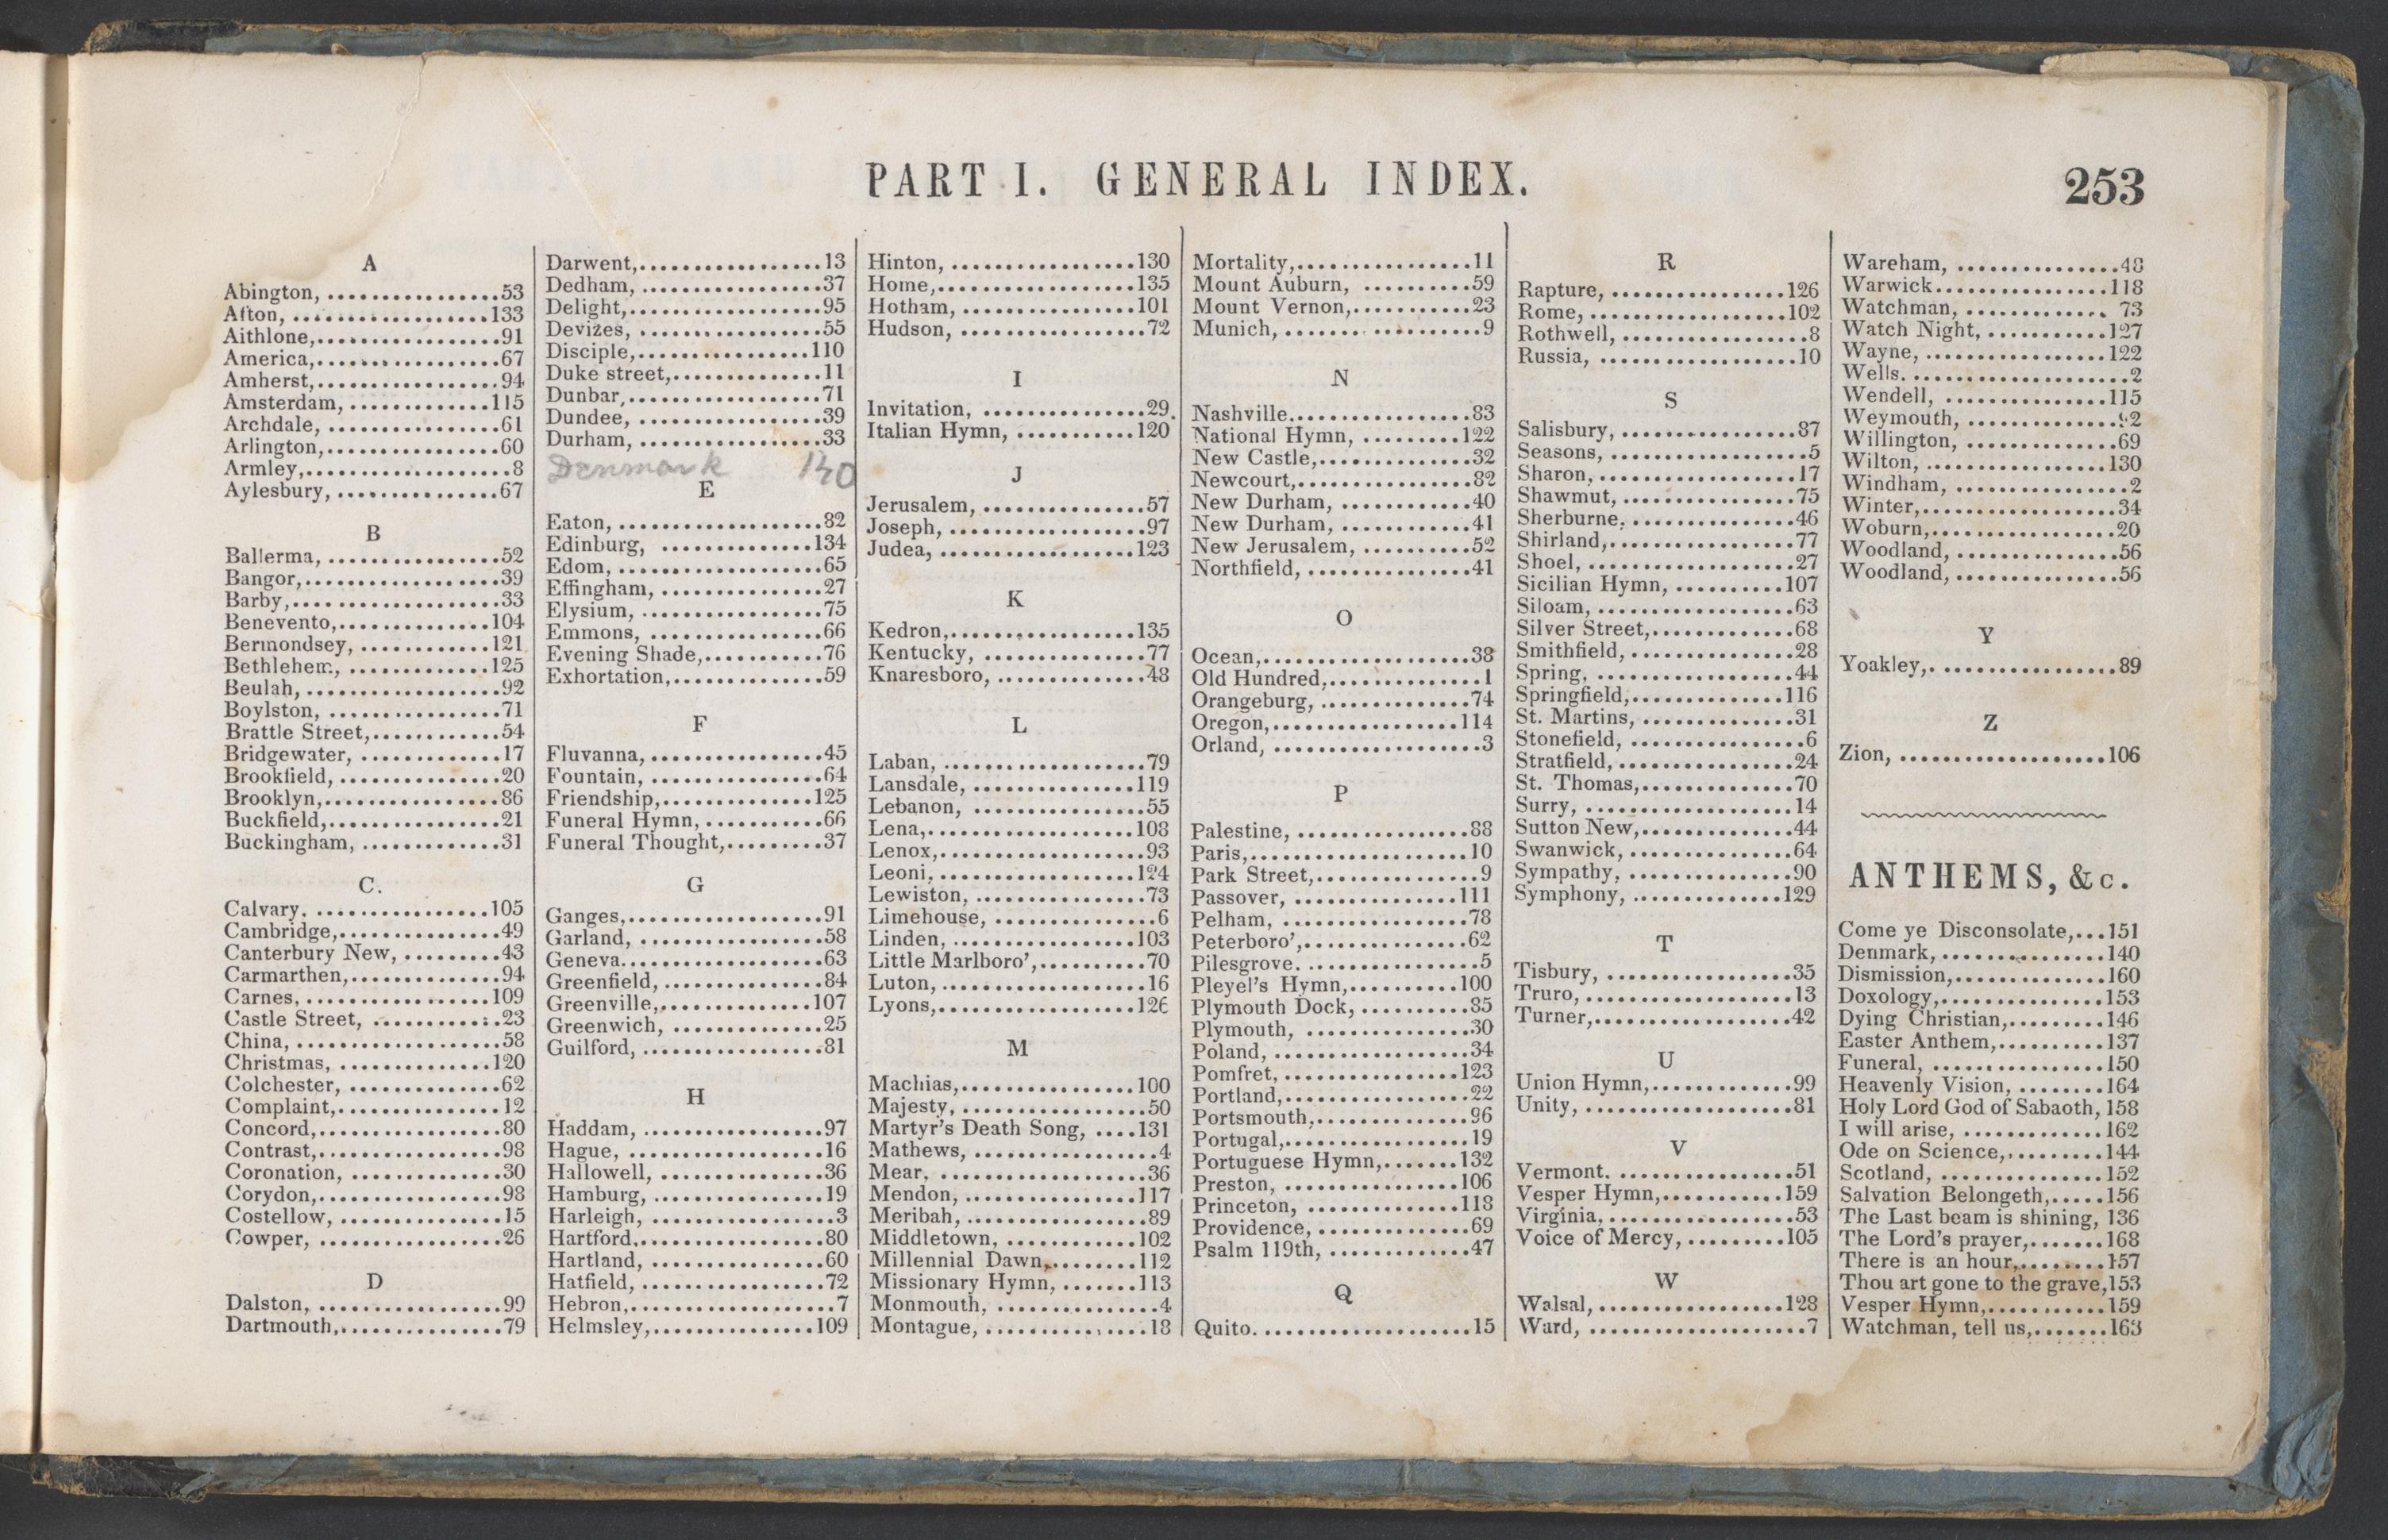 PART I. GENERAL INDEX.
253
A
Abington, ................53
Afton, ...................133
Aithlone,.................91
America,..................67
Amherst,..................94
Amsterdam, .............115
Archdale, ................61
Arlington,................60
Armley,....................8
Aylesbury, ...............67
B
Ballerma, ................52
Bangor,...................39
Barby,....................33
Benevento,..............104
Bermondsey, ............121
Bethlehem, .............125
Beulah, ..................92
Boylston, ................71
Brattle Street,............54
Bridgewater, .............17
Brookfield, ...............20
Brooklyn,.................86
Buckfield,.................21
Buckingham, .............31
C.
Calvary. ................105
Cambridge,...............49
Canterbury New, .........43
Carmarthen,..............94
Carnes, .................109
Castle Street, ............23
China, ...................58
Christmas, ..............120
Colchester, ..............62
Complaint,...............12
Concord,.................80
Contrast,.................98
Coronation, ..............30
Corydon,.................98
Costellow, ...............15
Cowper, .................26
D
Dalston, .................99
Dartmouth,...............79
Darwent,.................13
Dedham, .................37
Delight,..................95
Devizes, .................55
Disciple,................110
Duke street,..............11
Dunbar,..................71
Dundee, .................39
Durham, .................33
Denmark 140
E
Eaton, ...................82
Edinburg, ..............134
Edom, ...................65
Effingham, ...............27
Elysium, .................75
Emmons, ................66
Evening Shade,...........76
Exhortation,..............59
F
Fluvanna, ................45
Fountain, ................64
Friendship,..............125
Funeral Hymn, ...........66
Funeral Thought,.........37
G
Ganges,..................91
Garland, .................58
Geneva...................63
Greenfield, ...............84
Greenville,..............107
Greenwich, ..............25
Guilford, .................81
H
Haddam, .................97
Hague, ..................16
Hallowell, ................36
Hamburg, ................19
Harleigh, .................3
Hartford..................80
Hartland, ................60
Hatfield, .................72
Hebron,...................7
Helmsley,...............109
Hinton, .................130
Home,..................135
Hotham, ................101
Hudson, .................72
I
Invitation, ...............29.
Italian Hymn, ...........120
J
Jerusalem, ...............57
Joseph, ..................97
Judea, ..................123
K
Kedron,.................135
Kentucky, ...............77
Knaresboro, ..............48
L
Laban, ...................79
Lansdale, ...............119
Lebanon, ................55
Lena,...................108
Lenox,...................93
Leoni, ..................124
Lewiston, ................73
Limehouse, ...............6
Linden, .................103
Little Marlboro',..........70
Luton, ...................16
Lyons,..................126
M
Machias,................100
Majesty, .................50
Martyr's Death Song, ....131
Mathews, .................4
Mear, ...................36
Mendon, ................117
Meribah, .................89
Middletown, ............102
Millennial Dawn,.........112
Missionary Hymn, .......113
Monmouth, ...............4
Montague, ...............18
Mortality,................11
Mount Auburn, ..........59
Mount Vernon,...........23
Munich, ..................9
N
Nashville.................83
National Hymn, .........122
New Castle,..............32
Newcourt,................82
New Durham, ............40
New Durham, ............41
New Jerusalem, ..........52
Northfield, ...............41
O
Ocean,...................38
Old Hundred,..............1
Orangeburg, ..............74
Oregon,.................114
Orland, ...................3
P
Palestine, ................88
Paris,....................10
Park Street,...............9
Passover, ...............111
Pelham, .................78
Peterboro',...............62
Pilesgrove. ...............5
Pleyel's Hymn,..........100
Plymouth Dock, ..........85
Plymouth, ...............30
Poland, ..................34
Pomfret, ................123
Portland,.................22
Portsmouth,..............96
Portugal,.................19
Portuguese Hymn,.......132
Preston, ................106
Princeton, ..............118
Providence, ..............69
Psalm 119th, .............47
Q
Quito. ...................15
R
Rapture, ................126
Rome, ..................102
Rothwell, .................8
Russia, ..................10
S
Salisbury, ................87
Seasons, ..................5
Sharon, ..................17
Shawmut, ................75
Sherburne, ...............46
Shirland,.................77
Shoel, ...................27
Sicilian Hymn, ..........107
Siloam, ..................63
Silver Street,.............68
Smithfield, ...............28
Spring, ..................44
Springfield,..............116
St. Martins, ..............31
Stonefield, ................6
Stratfield, ................24
St. Thomas,..............70
Surry, ...................14
Sutton New,..............44
Swanwick, ...............64
Sympathy, ...............90
Symphony, ..............129
T
Tisbury, .................35
Truro, ...................13
Turner,..................42
U
Union Hymn,.............99
Unity, ...................81
V
Vermont. ................51
Vesper Hymn,...........159
Virginia, .................53
Voice of Mercy, .........105
W
Walsal, .................128
Ward, ....................7
Wareham, ...............48
Warwick................118
Watchman, ............. 73
Watch Night, ...........127
Wayne, .................122
Wells. ....................2
Wendell, ...............115
Weymouth, ..............92
Willington, ..............69
Wilton, .................130
Windham, ................2
Winter,..................34
Woburn,.................20
Woodland, ...............56
Woodland, ...............56
Y
Yoakley,. ................89
Z
Zion, ...................106
ANTHEMS, &c.
Come ye Disconsolate,...151
Denmark, ...............140
Dismission,..............160
Doxology,...............153
Dying Christian,.........146
Easter Anthem,..........137
Funeral, ................150
Heavenly Vision, ........164
Holy Lord God of Sabaoth, 158
I will arise, .............162
Ode on Science,.........144
Scotland, ...............152
Salvation Belongeth,.....156
The Last beam is shining, 136
The Lord's prayer,.......168
There is an hour,........157
Thou art gone to the grave,153
Vesper Hymn,...........159
Watchman, tell us,.......163